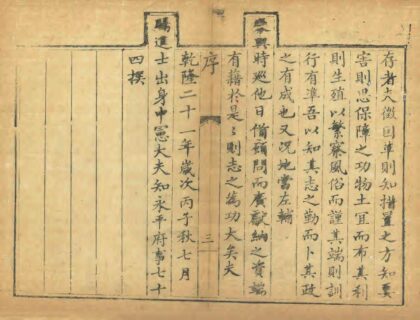 存者大徵因準則知措置之方知要
害則思保障之功物土宜而布其利
則生殖以繁察風俗而謹其端則訓
行有準吾以知其志之勤而卜其政
之有成也又况地當左輔
畢輿
時廵他日備顧問而廣獻納之資端
有藉於是是則志之為功大矣夫
序
三
乾隆二十一年歲次丙子秋七月
賜進士出身中憲大夫知永平府事七十
四撰